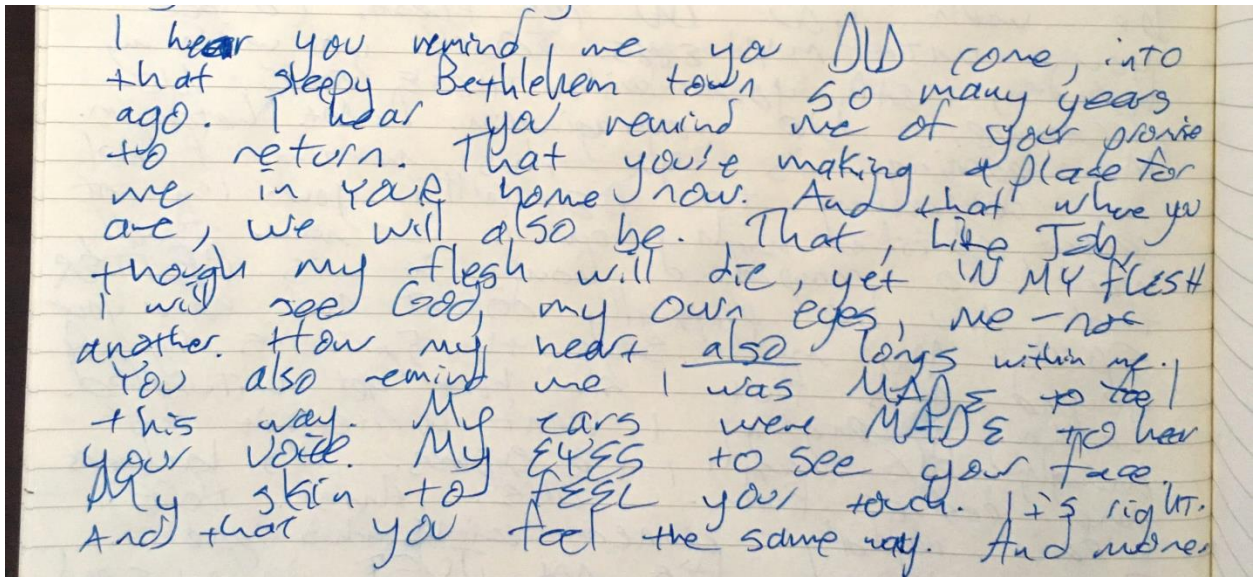 I hear you remind me you DID come, into
that sleepy Bethlehem town so many years
ago. I hear you remind me of your promise
to return. That you're making a place for
me in YOUR home now. And that where you
are, we will also be. That, like Job,
though my flesh will die, yet IN MY FLESH
I will see God, my own eyes, me - not
another. How my heart also longs within me.
You also remind me I was MADE to feel
this way. My ears were MADE to hear
your voice. My EYES to see your face.
My skin to FEEL your touch. It's right.
And that you feel the same way. And more.